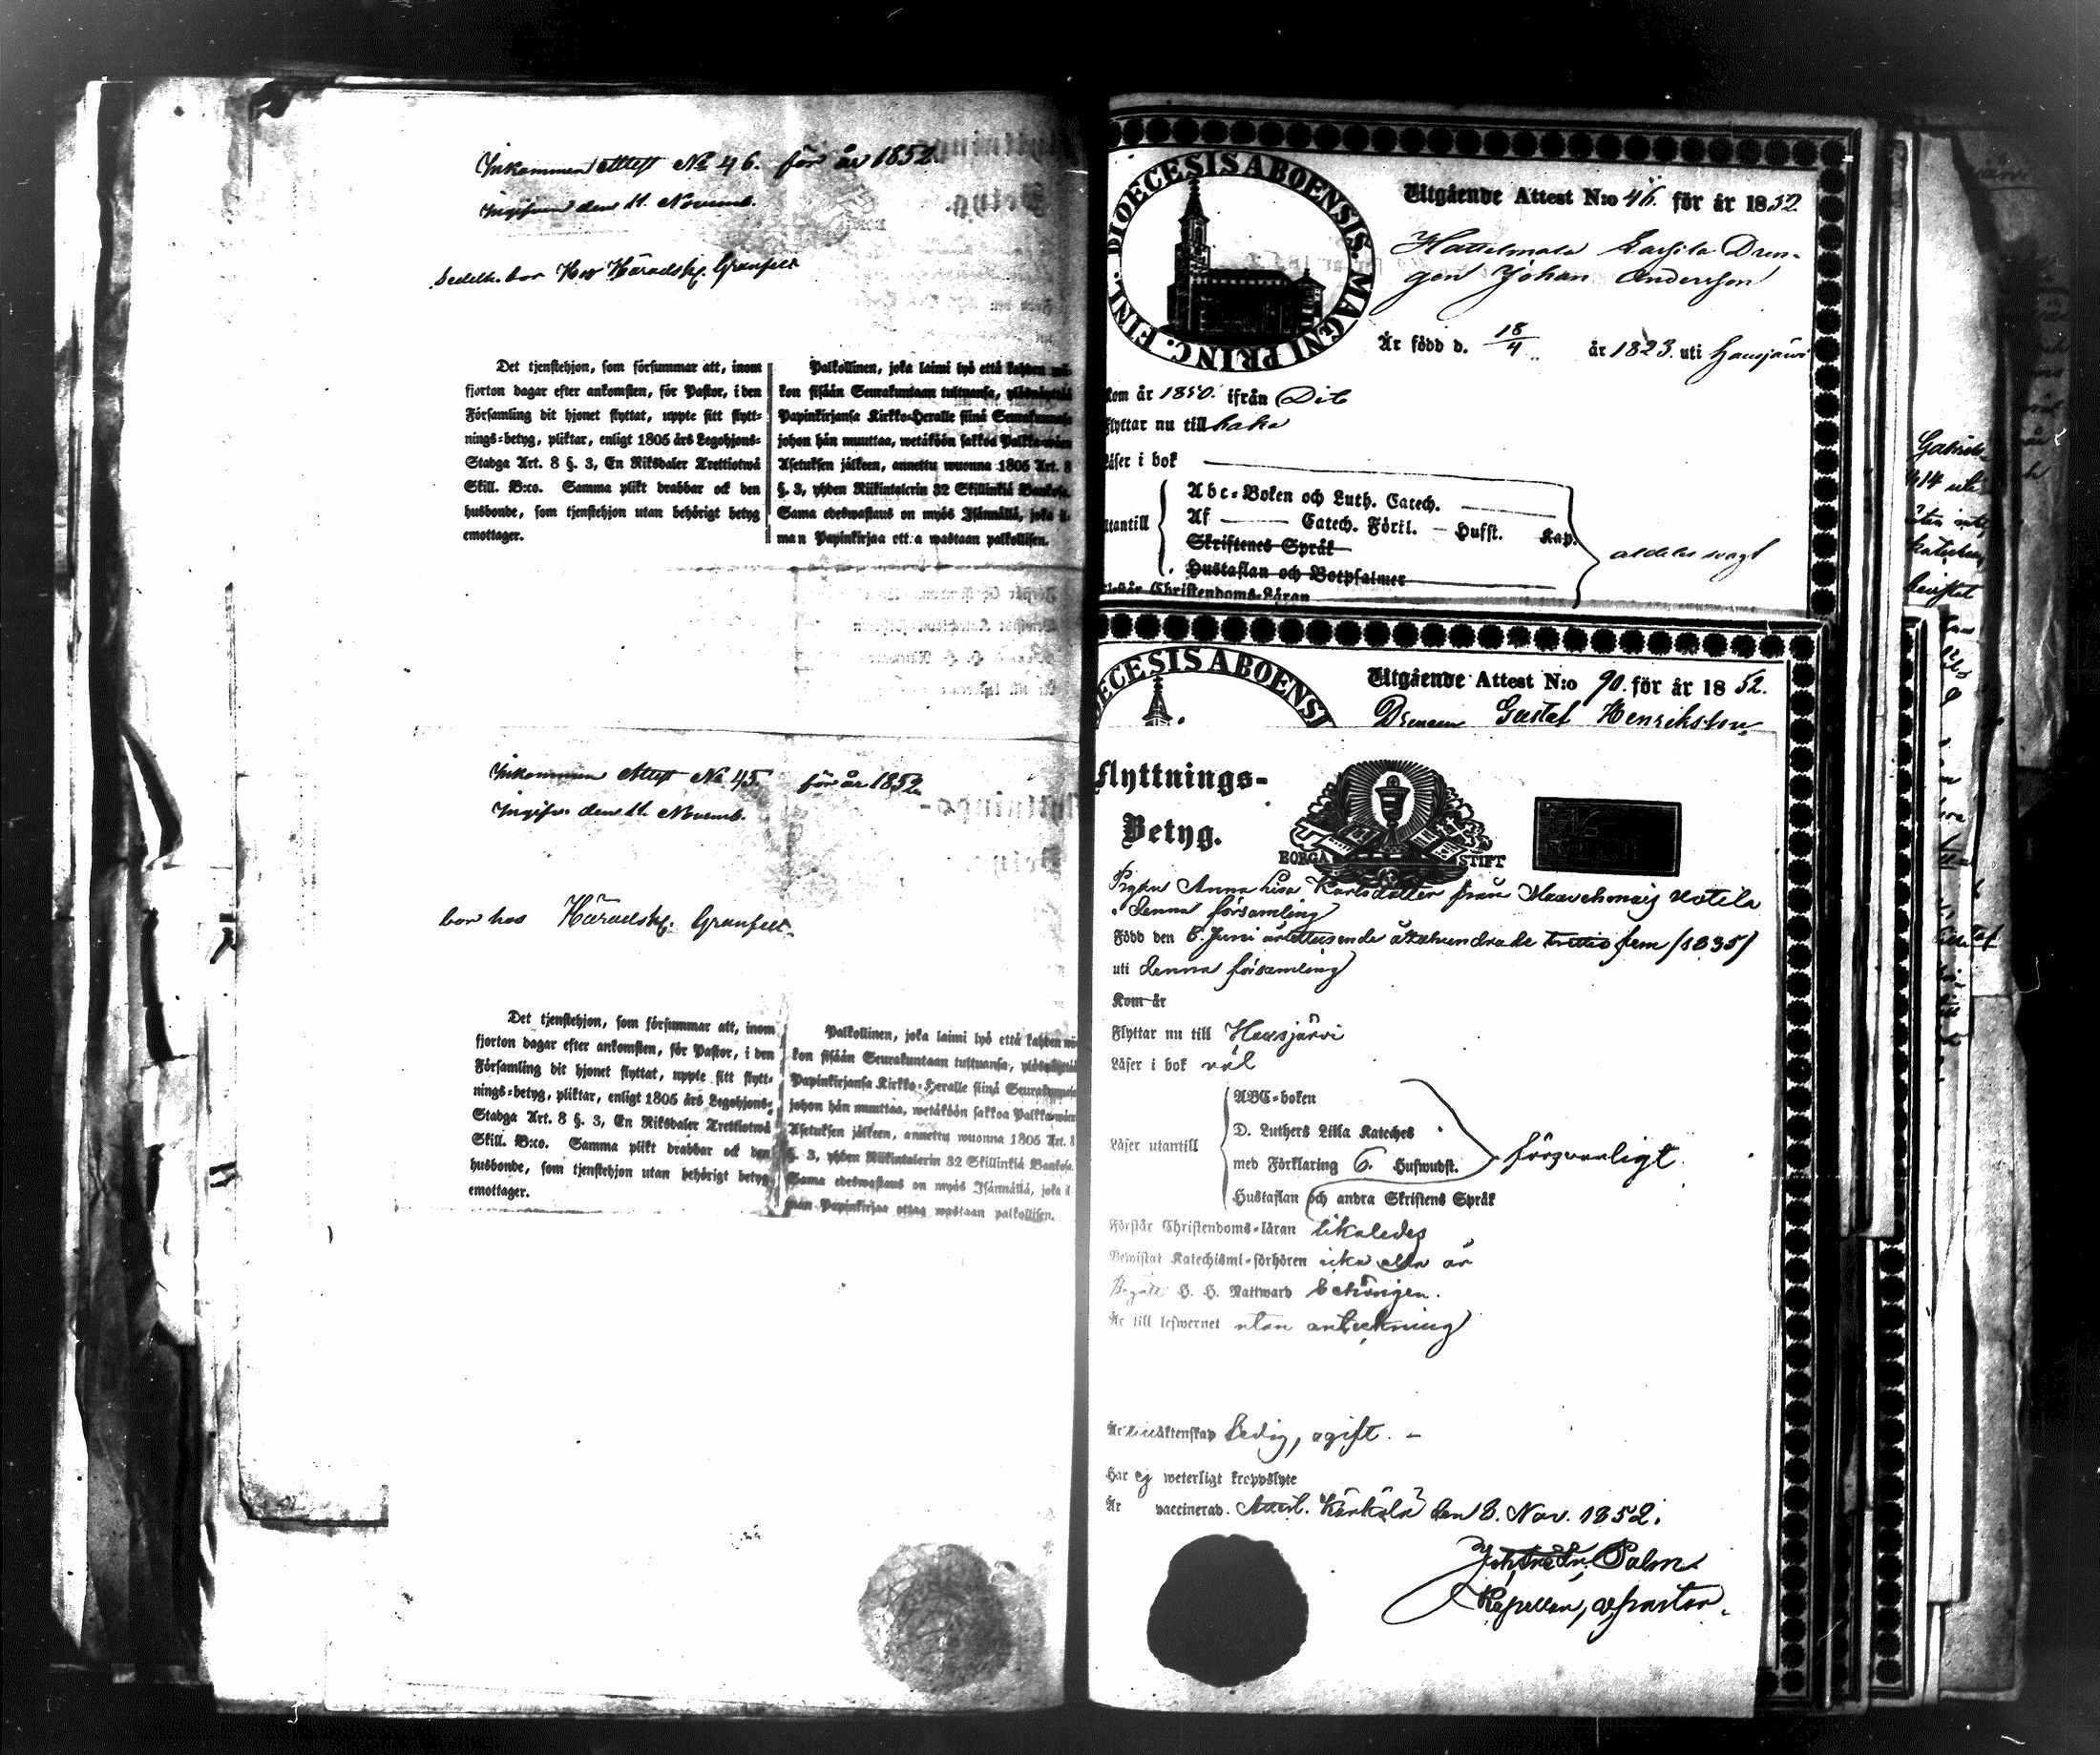 Inkommen Attest No 46. för år 1852.
Ingifven den 11. Novemb.
bor hos Häradsh. Granfelt
Det tjenstehjon, som försummar att, inom
fjorton dagar efter ankomsten, för Pastor, i den
Församling dit hjonet flyttat, uppte sitt flytt-
nings-betyg, pliktar, enligt 1805 års Legohjons-
Stadga Art. 8 §. 3, En Riksdaler Trettiotwå
Skill. B:co. Samma plikt drabbar ock den
husbonde, som tjenstehjon utan behörigt betyg
emottager.
Palkollinen, joka laimi lyö että kahden wii-
kon sisään Seurakuntaan tultuansa, ylösnäyttää
Papinkirjansa Kirkko-Heralle siinä Seurakunnasa
johon hän muuttaa, wetäköön sakkoa Palkkawäen
Asetuksen jälkeen, annettu wuonna 1805 Art. 8
§. 3, yhden Riikintalerin 32 Skillinkiä Bankosa.
Sama edeswastaus on myös Isännällä, joka il-
man Papinkirjaa ottaa wastaan palkollisen.
Inkommen Attest No 45. för år 1852
Ingifv. den 11. Novemb.
bor hos Häradsh. Granfelt.
Det tjenstehjon, som försummar att, inom
fjorton dagar efter ankomsten, för Pastor, i den
Församling dit hjonet flyttat, uppte sitt flytt-
nings-betyg, pliktar, enligt 1805 års Legohjons-
Stadga Art. 8 §. 3, En Riksdaler Trettiotwå
Skill. B:co. Samma plikt drabbar ock den
husbonde, som tjenstehjon utan behörigt betyg
emottager.
Palkollinen, joka laimi lyö että kahden wii-
kon sisään Seurakuntaan tultuansa, ylösnäyttää
Papinkirjansa Kirkko-Heralle siinä Seurakunnasa
johon hän muuttaa, wetäköön sakkoa Palkkawäen
Asetuksen jälkeen, annettu wuonna 1805 Art. 8
§. 3, yhden Riikintalerin 32 Skillinkiä Bankosa.
Sama edeswastaus on myös Isännällä, joka il-
man Papinkirjaa ottaa wastaan palkollisen.
DIOECESIS ABOENSIS. MAGNI PRINC. FINL.
Utgående Attest N:o 46. för år 1852
Hattelmala Drän-
gen Johan Andersson
Är född d. 18/4 år 1823. uti Hausjärvi
Kom år 1850. ifrån Dit
Flyttar nu till
Läser i bok
Utantill
Abc-Boken och Luth. Catech.
Af Catech. Förkl. Husft. Kap.
Skriftenes Språk
Hustaflan och Botpsalmer
aldeles svagt
Christendoms-Läran
ECESIS ABOENSI
Utgående Attest N:o 90. för år 1852.
Drängen Gustaf Henriksson
Flyttnings-
Betyg.
BORGÅ STIFT
Pigan Anna Lisa Karlsdotter från Uotila
i denna församling
Född den 6. Juni år ettusende åttahundrade trettio fem (1835)
uti denna församling
Kom år
Flyttar nu till Hausjärvi
Läser i bok väl
Läser utantill
ABC-boken
D. Luthers Lilla Kateches
med Förklaring 6. Hufwudst.
Hustaflan och andra Skriftens Språk
försvarligt.
Förstår Christendoms-läran likaledes
Bewistat Katechismi-förhören icke alla år
Begått H. H. Nattward behörigen.
Är till lefwernet utan anteckning
Är till äktenskap ledig, ogift. —
Har ej weterligt kroppslyte
Är vaccinerad. Attest. Kärkölä den 8. Nov. 1852.
Palm.
Kapellan, v. pastor.